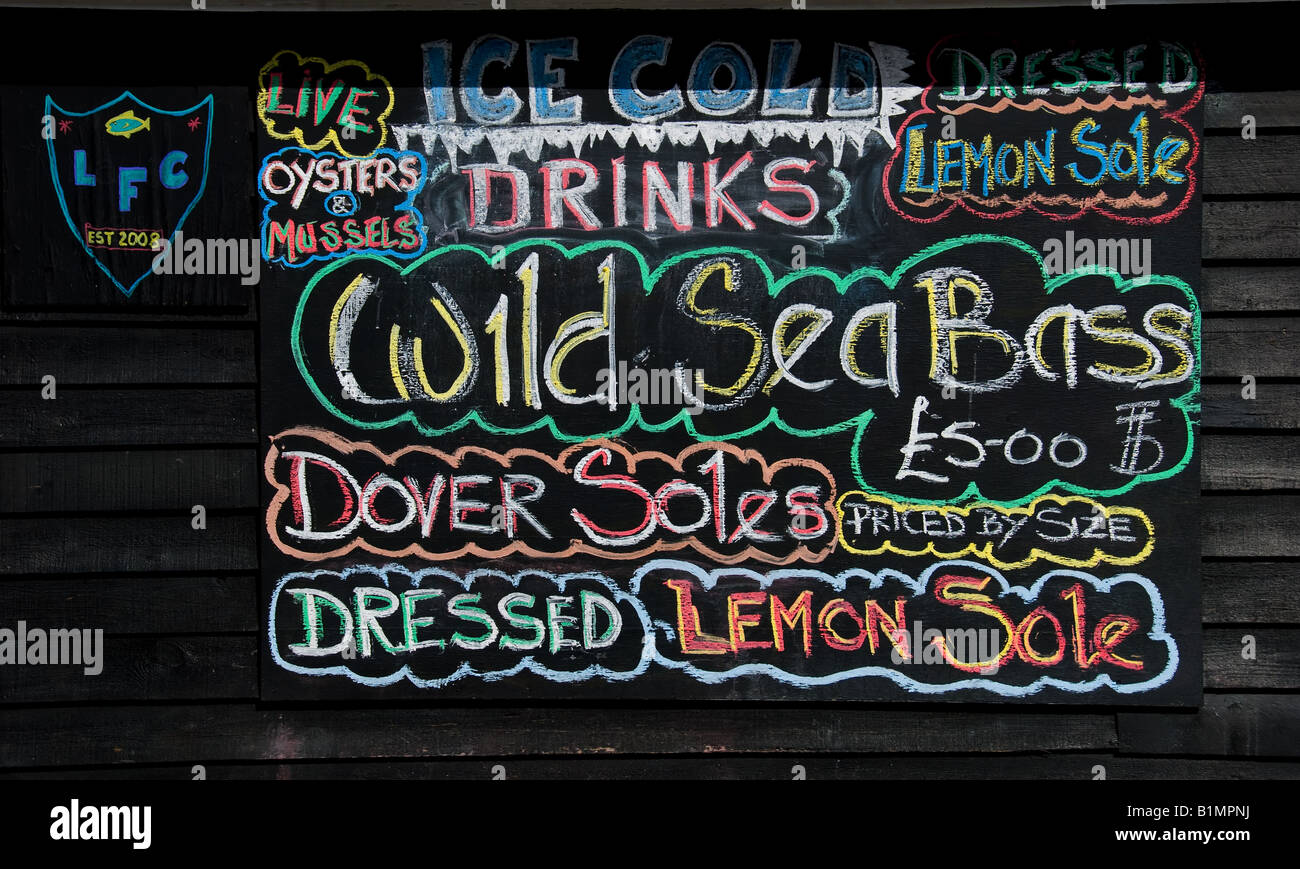 LFC
EST 2008
LIVE
OYSTERS
&
MUSSELS
ICE COLD
DRINKS
DRESSED
LEMON Sole
Wild Sea Bass
£5-00 lb
DOVER Soles
PRICED BY SIZE
DRESSED LEMON Sole
alamy
Image ID: B1MPNJ
www.alamy.com